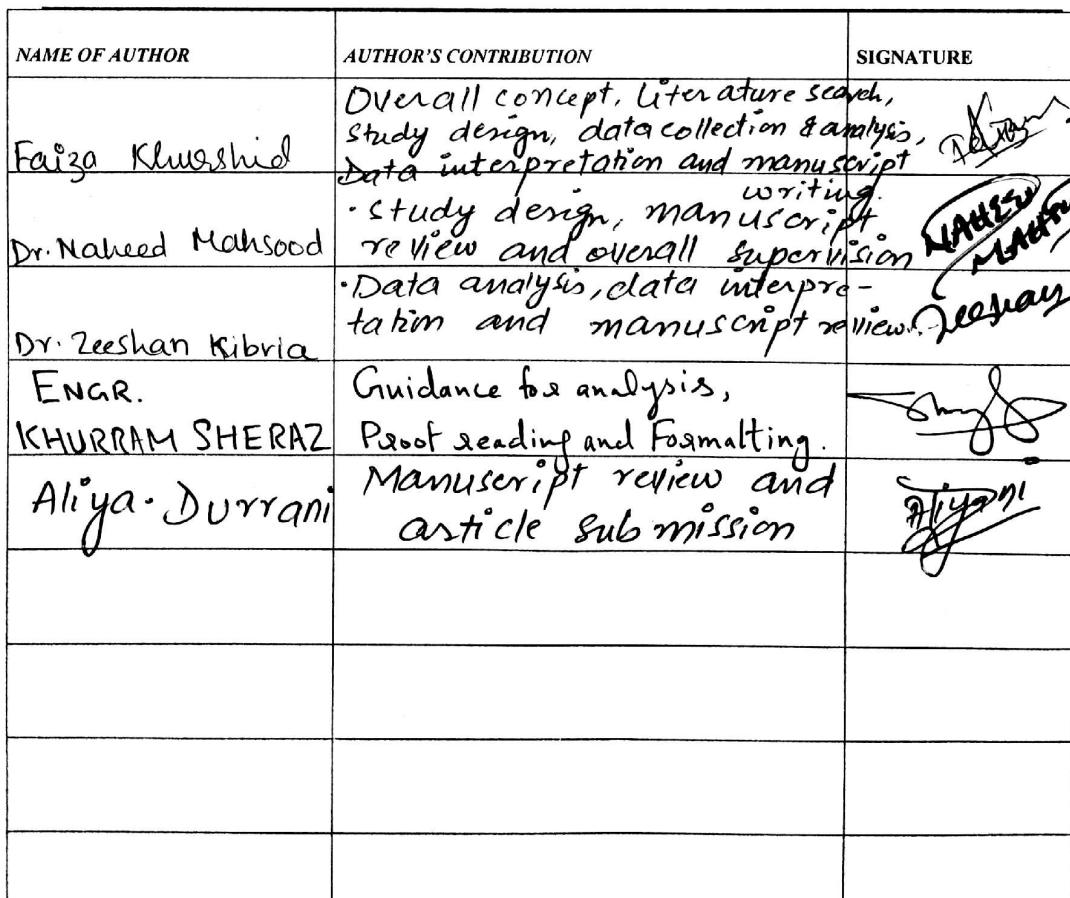 NAME OF AUTHOR AUTHOR'S CONTRIBUTION SIGNATURE
Faiza Khurshid
Overall concept, literature search,
study design, data collection & analysis,
Data interpretation and manuscript
writing.
Dr. Naheed Mahsood
· study design, manuscript
review and overall supervision
NAHEED
MAHSOOD
Dr. Zeeshan Kibria
· Data analysis, data interpre-
tation and manuscript review.
Zeeshan
ENGR.
KHURRAM SHERAZ
Guidance for analysis,
Proof reading and Formatting.
Aliya Durrani
Manuscript review and
article submission